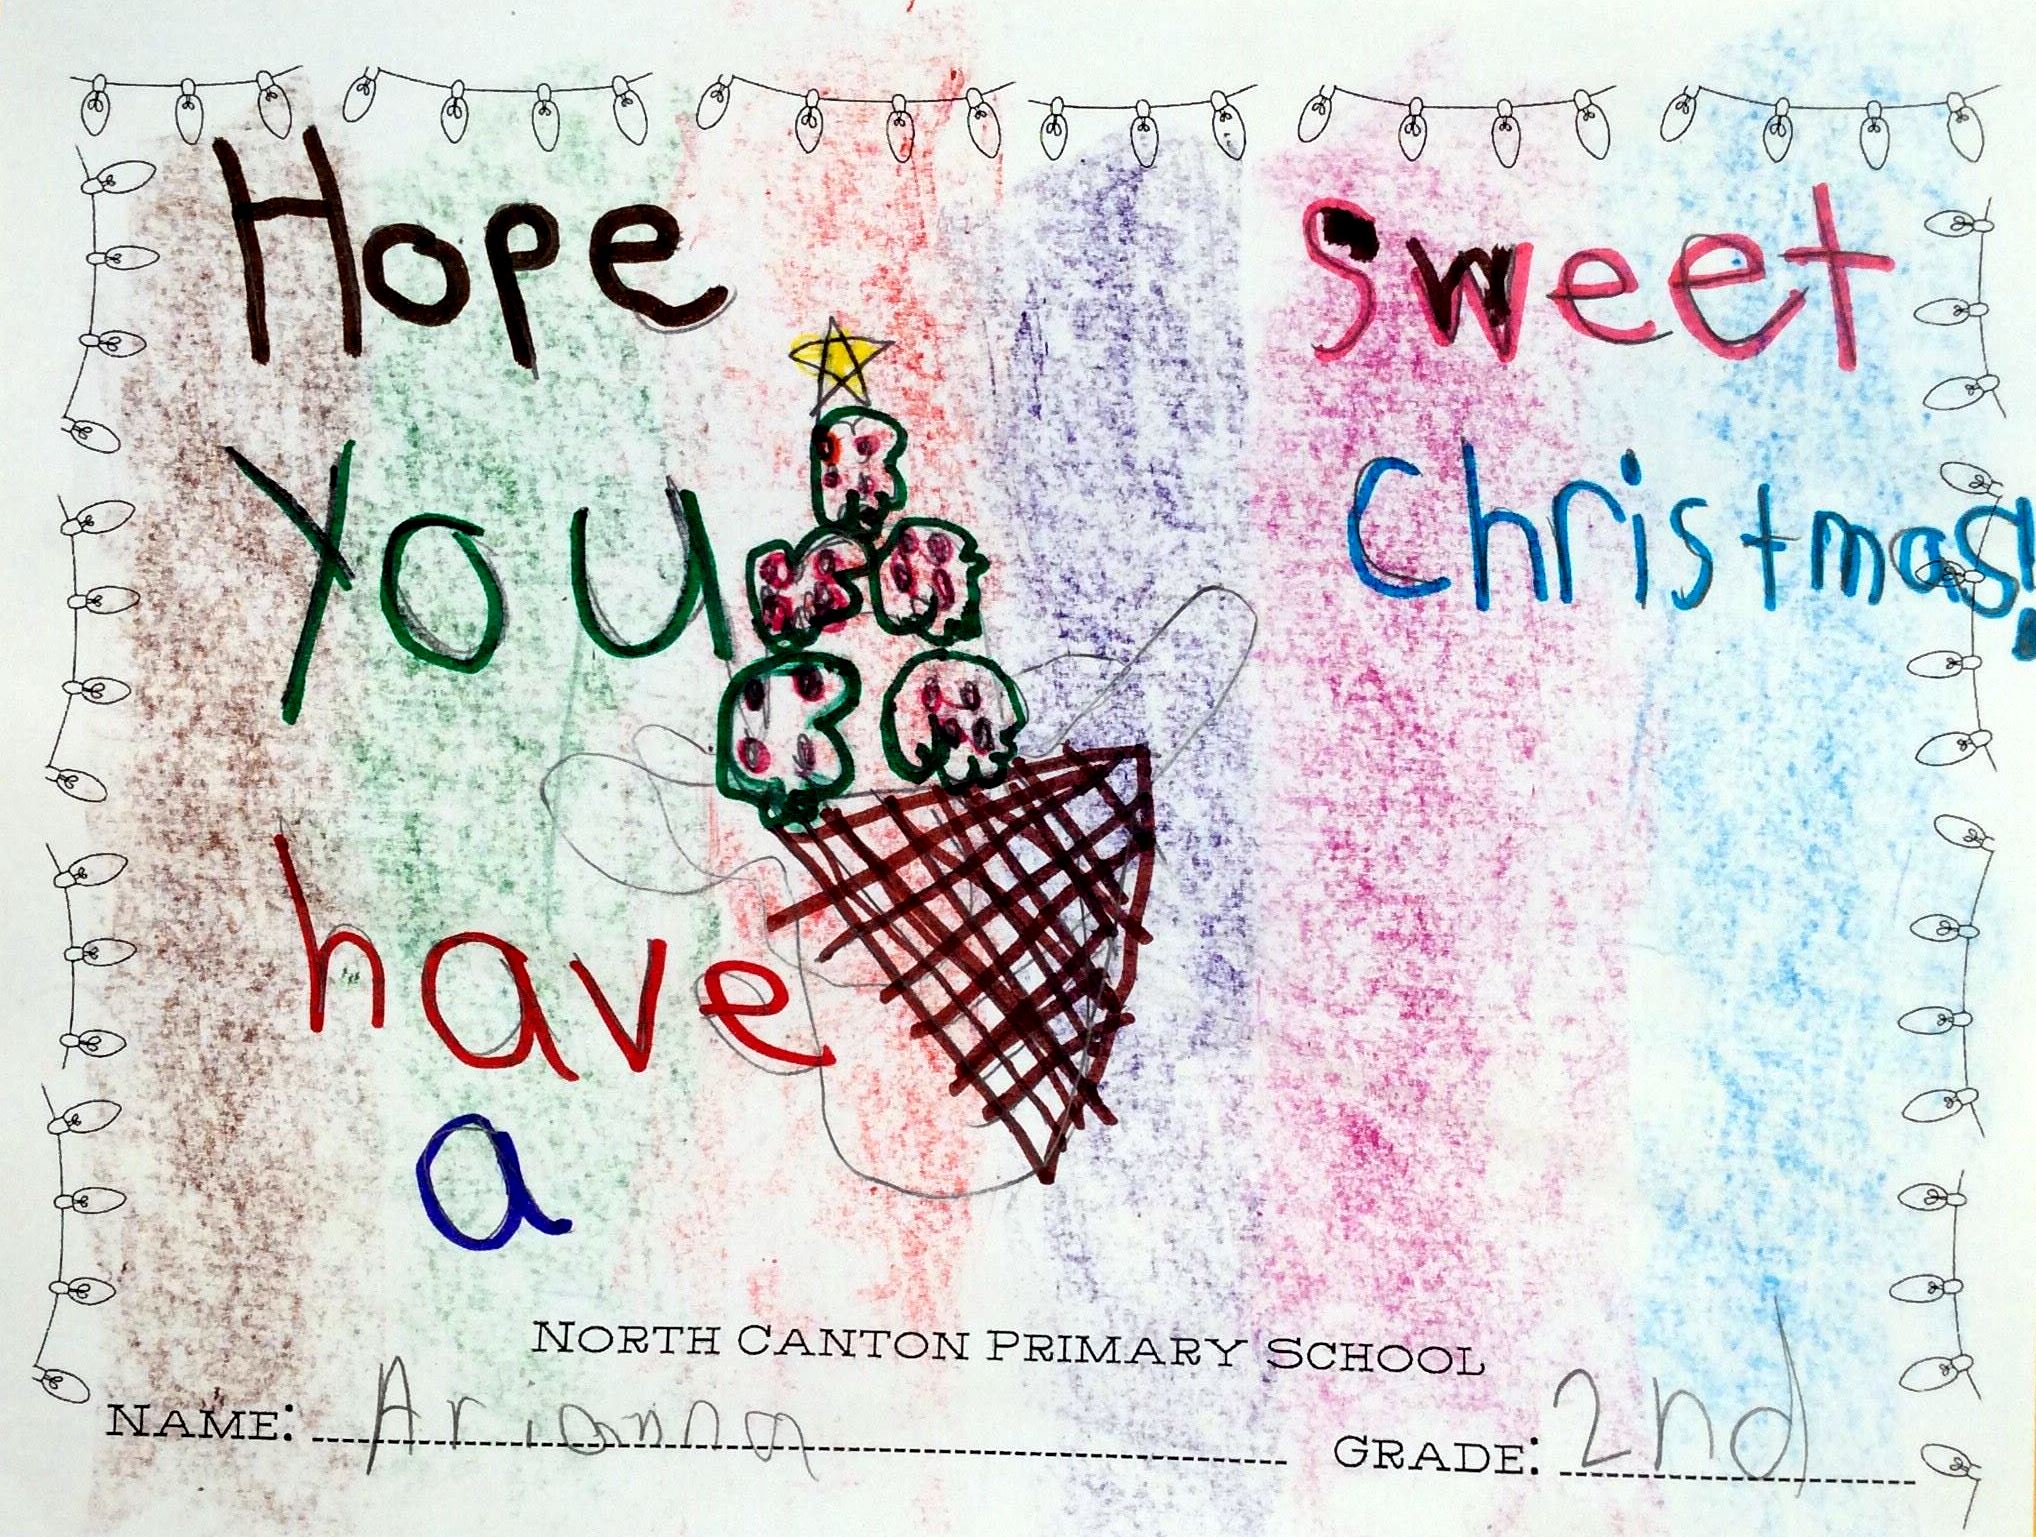 Hope
you
have
a
Sweet
Christmas!
NORTH CANTON PRIMARY SCHOOL
NAME: Arianna
GRADE: 2nd